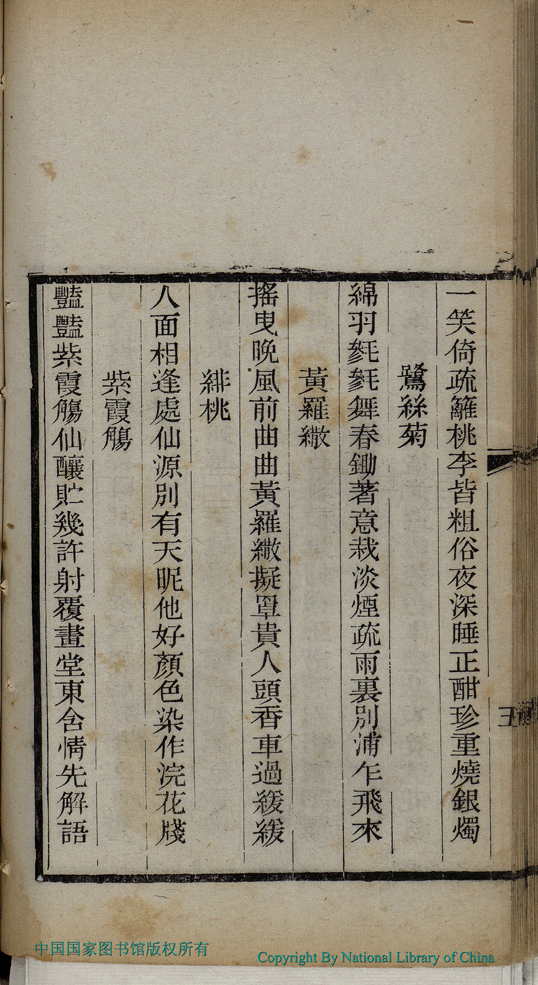 一笑倚疏籬桃李皆粗俗夜深睡正酣珍重燒銀燭
鷺絲菊
綿羽毿毿舞春鋤著意栽淡煙疏雨裏別浦乍飛來
黃羅繖
搖曳晚風前曲曲黃羅繖擬罩貴人頭香車過緩緩
緋桃
人面相逢處仙源別有天昵他好顏色染作浣花牋
紫霞觴
豔豔紫霞觴仙釀貯幾許射覆畫堂東含情先解語
中国国家图书馆版权所有
Copyright By National Library of China